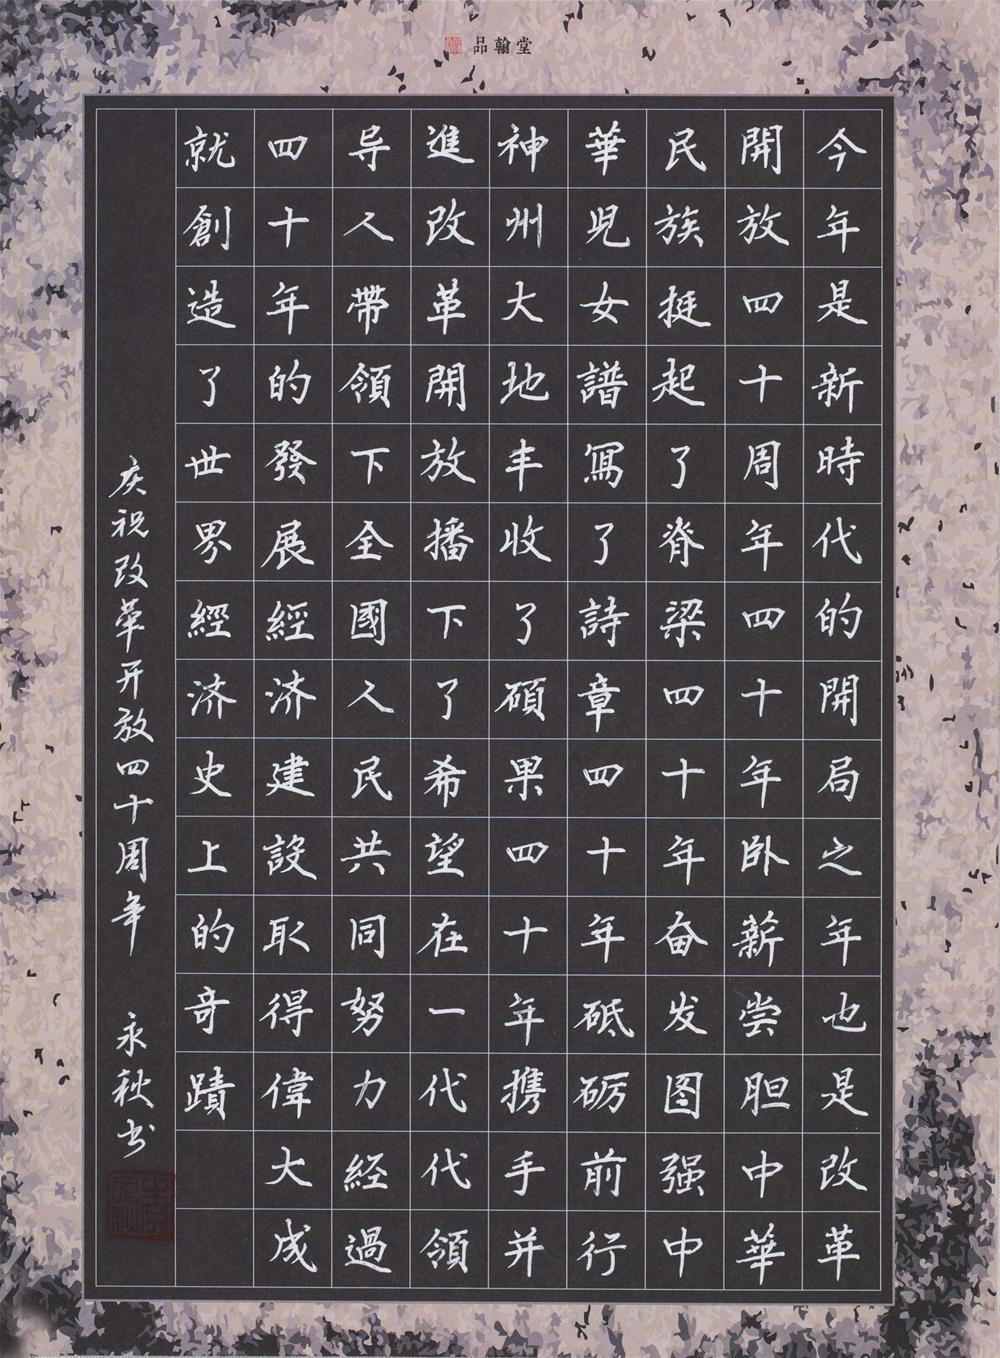 品翰堂
今年是新時代的開局之年也是改革
開放四十周年四十年卧薪尝胆中華
民族挺起了脊梁四十年奋发图强中
華児女譜寫了詩章四十年砥砺前行
神州大地丰收了碩果四十年携手并
進改革開放播下了希望在一代代領
导人帶領下全國人民共同努力経過
四十年的發展經济建設取得偉大成
就創造了世界經济史上的奇蹟
庆祝改革开放四十周年 永秋书